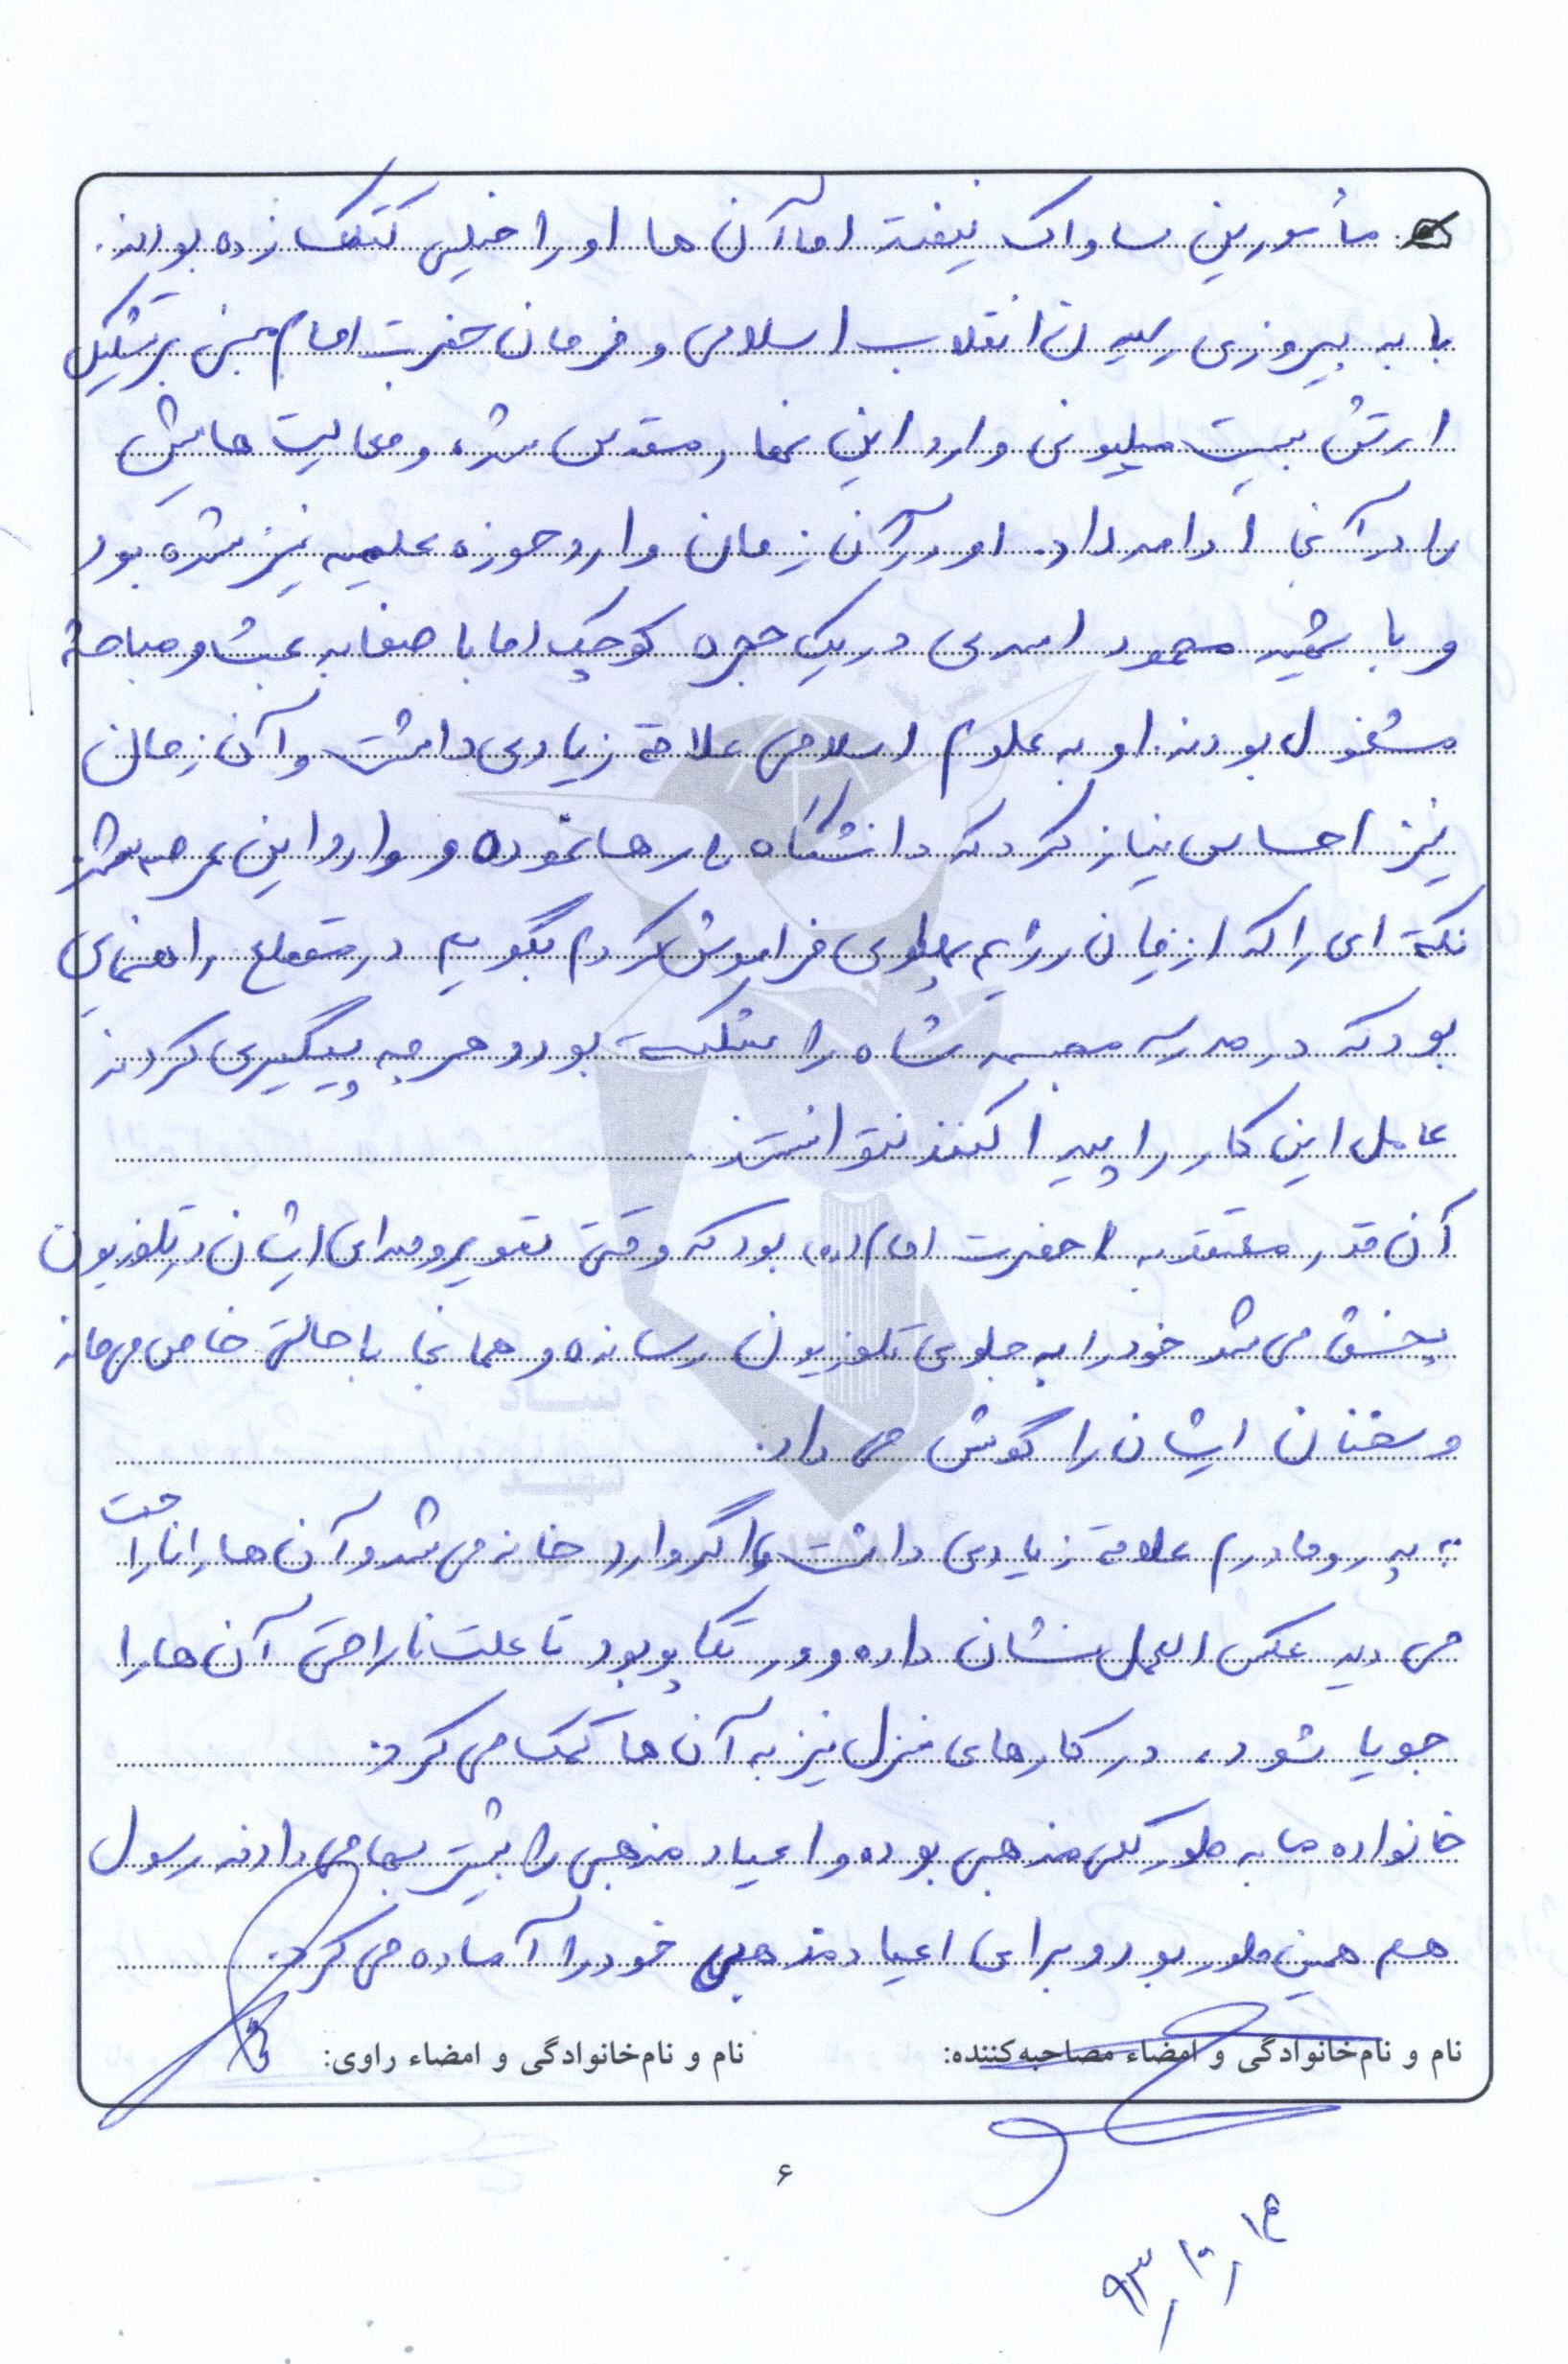 مأمورین ساواک نیفتد اما آن ها او را خیلی کتک زده بودند.
با به پیروزی رسیدن انقلاب اسلامی و فرمان حضرت امام مبنی بر تشکیل
ارتش بیست میلیونی وارد این نهاد مقدس شد، و فعالیت هایش
را در آنجا ادامه داد. او در آن زمان وارد حوزه علمیه نیز شده بود
و با شهید محمود اسدی در یک حجره کوچک اما با صفا به بحث و مباحثه
مشغول بودند. او به علوم اسلامی علاقه زیادی داشت و آن زمان
نیز احساس نیاز کرد که دانشگاه را رها نموده و وارد این عرصه شد
نکته ای را که از زمان رژیم پهلوی فراموش کردم بگویم در مقطع راهنمایی
بود که در مدرسه مجسمه شاه را شکسته بود و هر چه پیگیری کردند
عامل این کار را پیدا کنند نتوانستند.
آن قدر معتقد به حضرت امام (ره) بود که وقتی تصویر و صدای ایشان در تلوزیون
پخش می شد خود را به جلوی تلوزیون رسانده و همانجا با حالتی خاص می ماند
و سخنان ایشان را گوش می داد.
به پدر و مادرم علاقه زیادی داشت و اگر وارد خانه می شد و آن ها را ناراحت
می دید عکس العمل نشان داده و در تکاپو بود تا علت ناراحتی آن ها را
جویا شود، در کارهای منزل نیز به آن ها کمک می کرد.
خانواده ما به طور کلی مذهبی بوده و اعیاد مذهبی را بیشتر بها می دادند رسول
هم همین طور بود و برای اعیاد مذهبی خود را آماده می کرد.
نام و نام‌خانوادگی و امضاء مصاحبه‌کننده: نام و نام‌خانوادگی و امضاء راوی:
۶